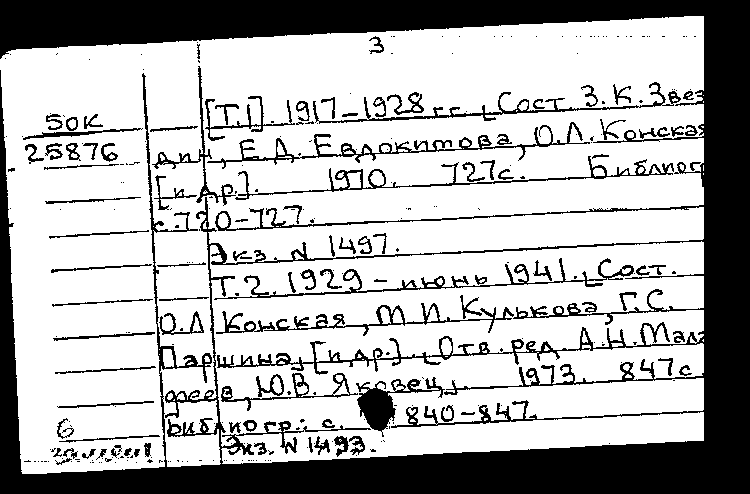 3
50К
25876
[Т.1]. 1917–1928 гг. [Сост. З.К. Звез
дин, Е.Д. Евдокитова, О.Л. Конская
[и др.]. 1970. 727с. Библиогр
с.720–727.
Экз. N 1497.
Т.2. 1929 – июнь 1941. [Сост.
О.Л. Конская, М.И. Кулькова, Г.С.
Паршина, [и др.]. [Отв. ред. А.Н. Мала
феев, Ю.В. Яковец]. 1973. 847с.
Библиогр.: с. 840–847.
6
Экз. N 1493.